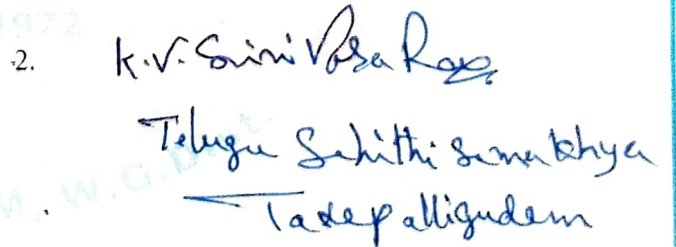 2. K.V. Srinivasa Rao
Telugu Sahithi Samakhya
Tadepalligudem